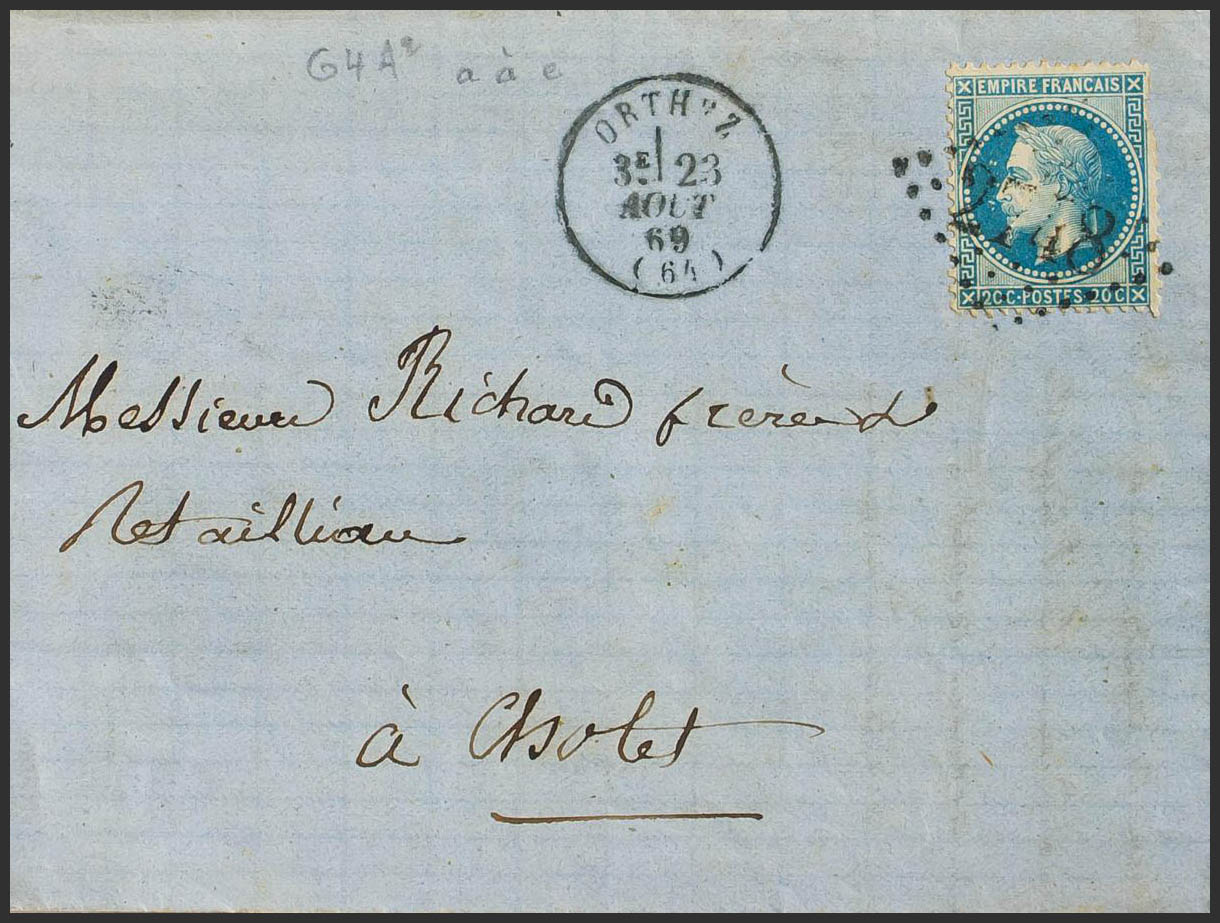 G4A² a à e
ORTHEZ
3E 23
AOUT
69
(64)
EMPIRE FRANCAIS
2748
20C·POSTES·20C
Messieurs Richard frères &
Retailliau
à Cholet